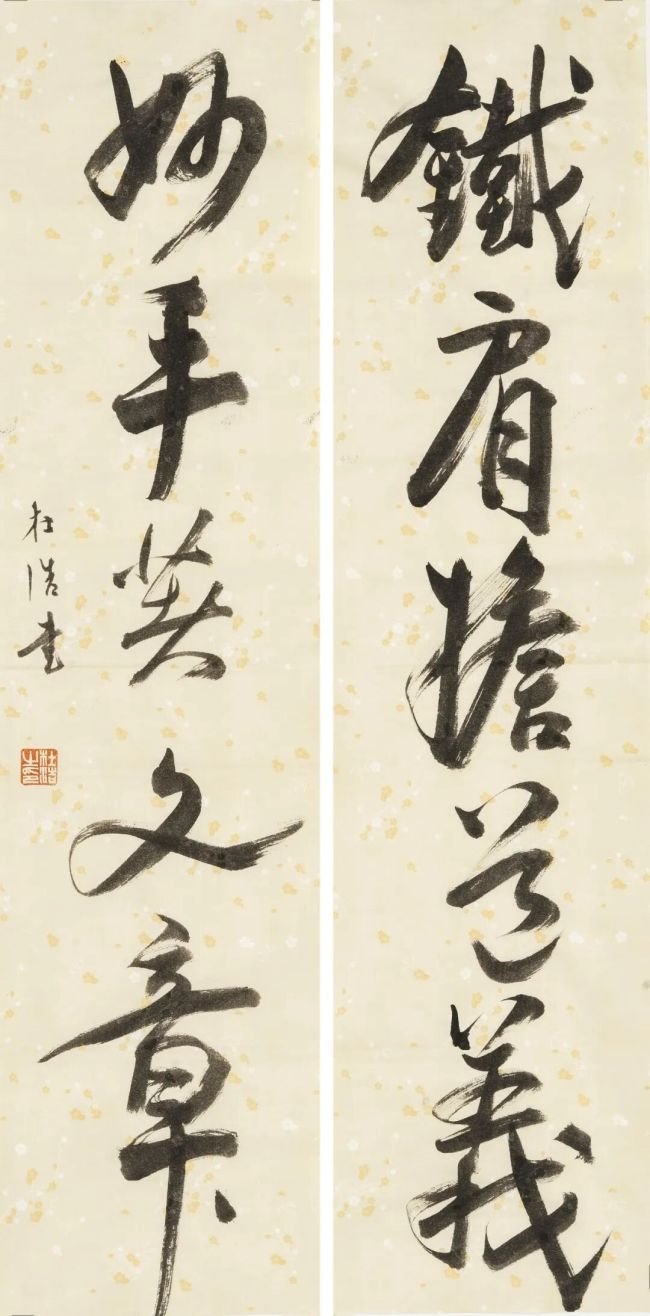 鐵肩擔道義
妙手著文章
杜浩書
杜浩之印